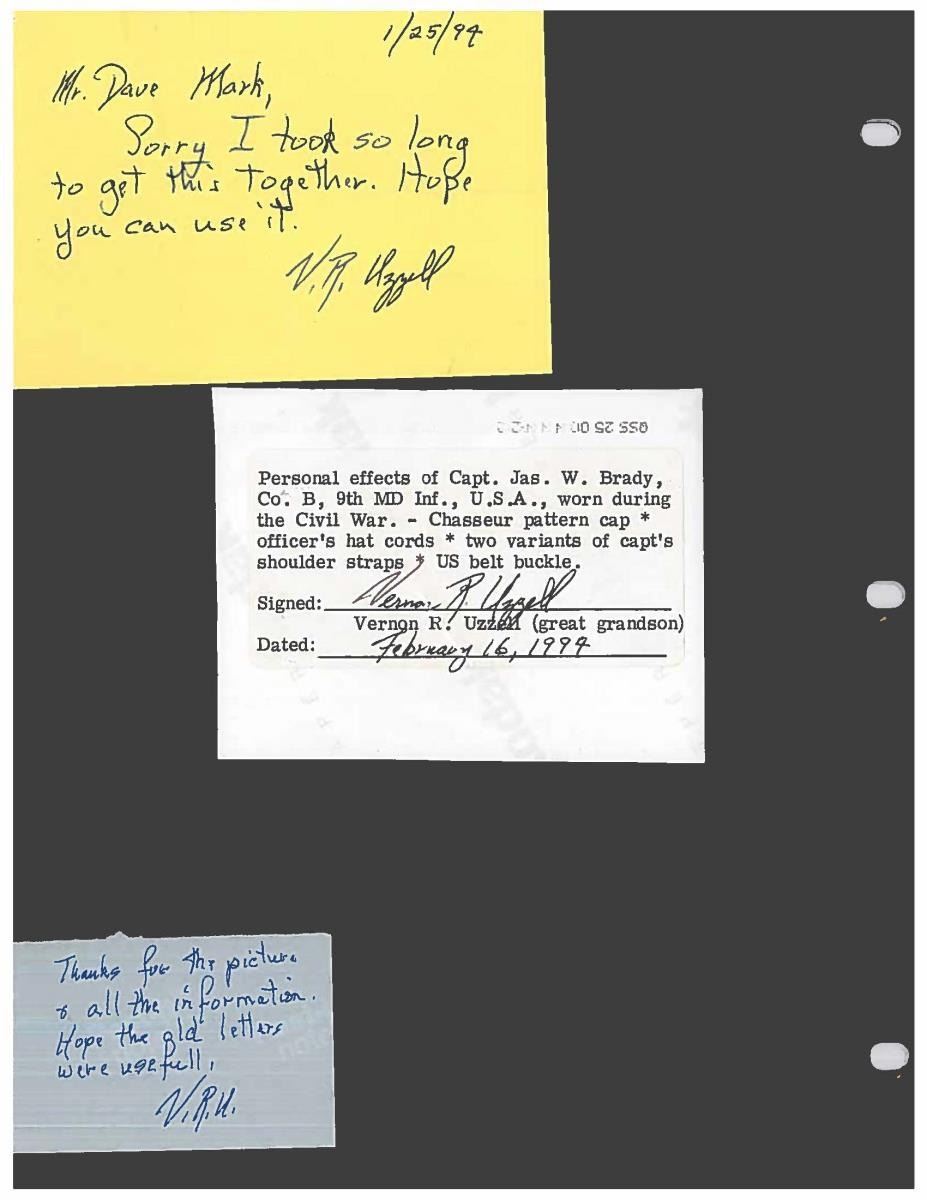 1/25/94
Mr. Dave Mark,
Sorry I took so long
to get this together. Hope
you can use it.
V.R. Uzzell
Personal effects of Capt. Jas. W. Brady,
Co. B, 9th MD Inf., U.S.A., worn during
the Civil War. - Chasseur pattern cap *
officer's hat cords * two variants of capt's
shoulder straps * US belt buckle.
Signed: Vernon R. Uzzell
Vernon R. Uzzell (great grandson)
Dated: February 16, 1994
Thanks for the picture
& all the information.
Hope the old letters
were usefull.
V.R.U.